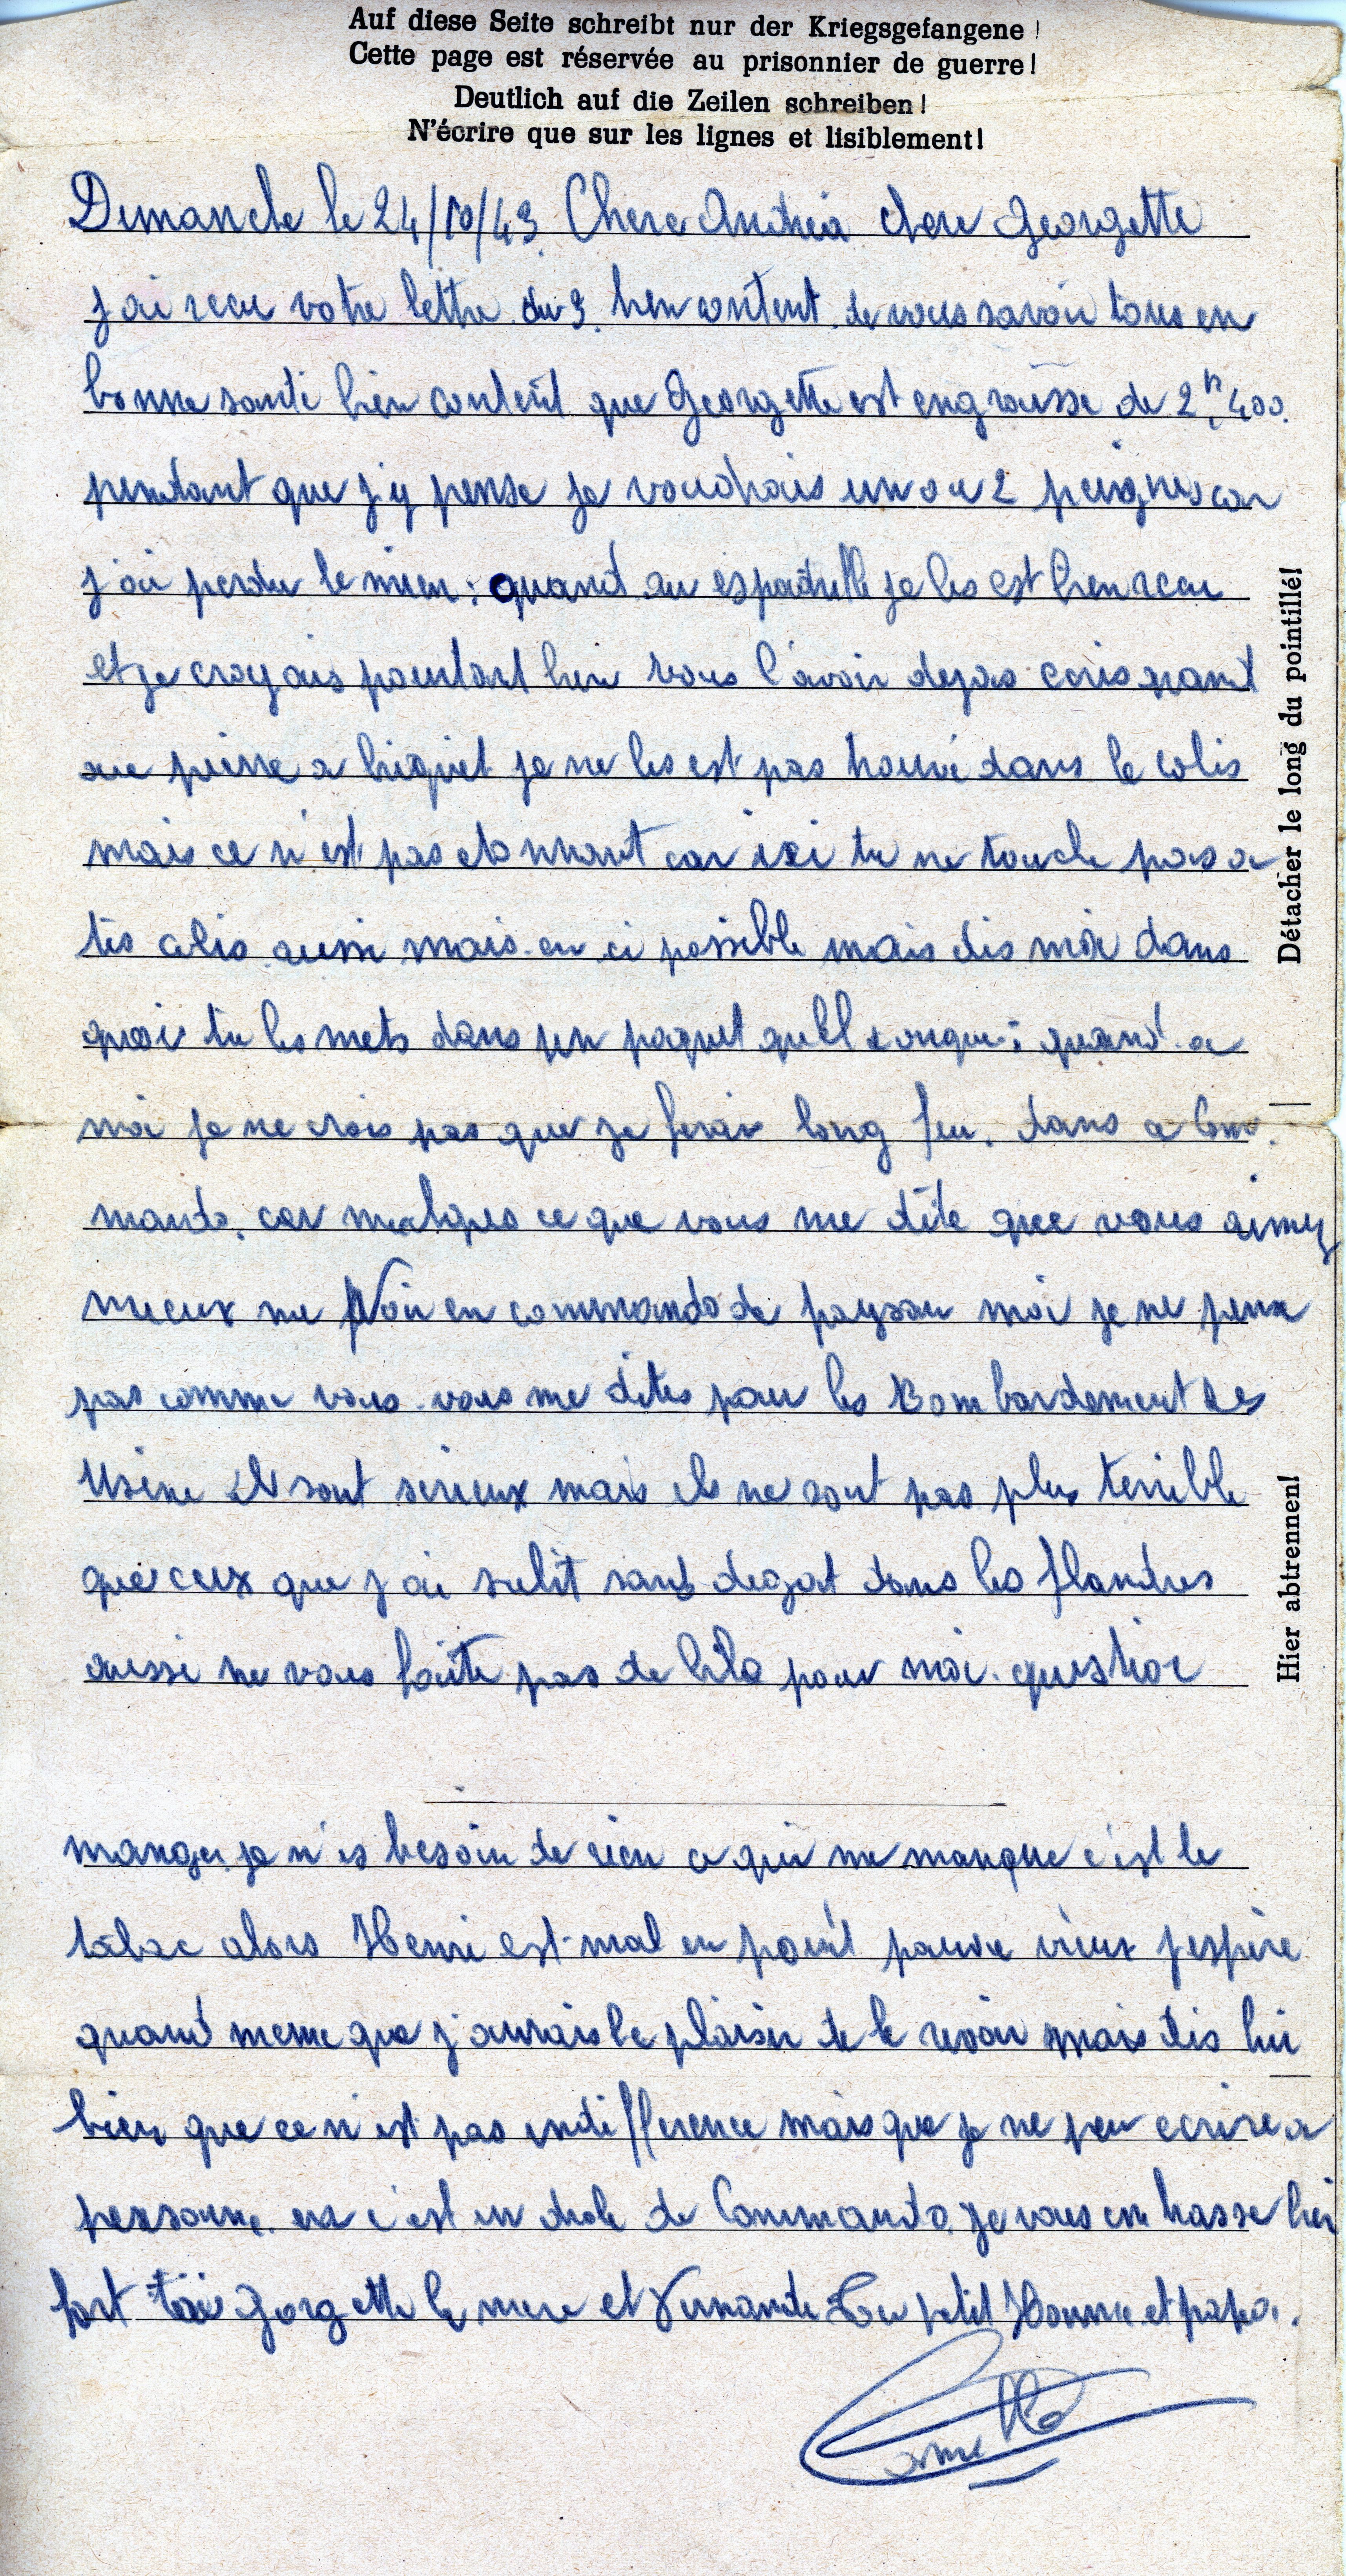 Auf diese Seite schreibt nur der Kriegsgefangene!
Cette page est réservée au prisonnier de guerre!
Deutlich auf die Zeilen schreiben!
N'écrire que sur les lignes et lisiblement!
Dimanche le 24/10/43 Chere Andréa chere Georgette
j ai recu votre lettre du 3. bien content de vous savoir tous en
bonne santé bien content que Georgette est engraisse de 2k,400.
pendant que j'y pense je voudrais un ou 2 peignes car
j'ai perdu le mien; quand au espadrille je les est bien recu
et je croyais pourtant bien vous l'avoir dejas ecris quand
au pierre a briquet je ne les est pas trouvé dans le colis
mais ce n'est pas etonnant car ici tu ne touche pas a
tes colis aussi mais en ci possible mais dis moi dans
quoi tu les mets dans un paquet quellconque; quand a
moi je ne crois pas que je ferai long feu. dans ce Com.
mando, car malgres ce que vous me dite que vous aimez
mieux me Voir en commando de paysan moi je ne pense
pas comme vous. vous me dites pour les Bombardement des
Usine ils sont serieux mais ils ne sont pas plus terrible
que ceux que j ai subit sans degat dans les flandres
aussi ne vous faite pas de bile pour moi. question
manger je n'es besoin de rien ce qui me manque c'est le
tabac alors Henri est mal en point pauvre vieux j espère
quand meme que j'aurais le plaisir de le revoir mais dis lui
bien que ce n'est pas indifference mais que je ne peu ecrire a
personne. c'est un drole de Commando je vous embrasse bien
fort toi Gorgette la mere et Fernande Le petit Homme et papa.
Détacher le long du pointillé!
Hier abtrennen!